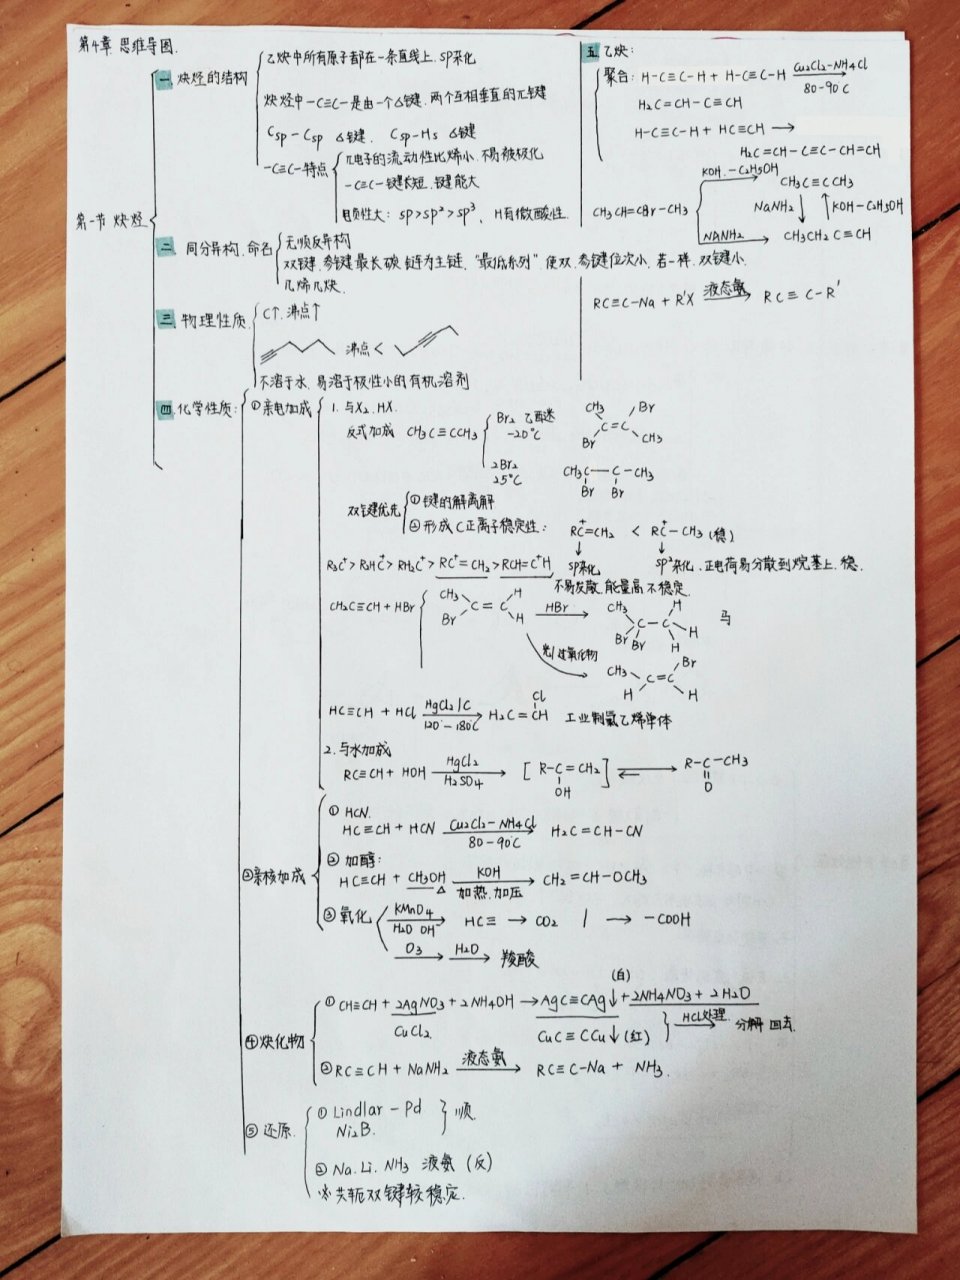 第4章 思维导图.
第一节 炔烃
一. 炔烃的结构
乙炔中所有原子都在一条直线上. sp杂化
炔烃中-C≡C-是由一个δ键. 两个互相垂直的π键
Csp - Csp δ键. Csp-Hs δ键
-C≡C-特点
π电子的流动性比烯小. 不易被极化
-C≡C-键长短. 键能大
电负性大: sp>sp²>sp³、H有微酸性.
二. 同分异构. 命名
无顺反异构
双键. 叁键最长碳链为主链, "最低系列" 使双.叁键位次小. 若一样. 双键小.
几烯几炔.
三. 物理性质.
C↑. 沸点↑
沸点 <
不溶于水. 易溶于极性小的有机溶剂
四. 化学性质:
①亲电加成
1. 与X2. HX.
反式加成 CH3C≡CCH3
Br2 乙醚
-20℃
CH3 Br
C=C
Br CH3
2Br2
25℃
CH3C — C -CH3
Br Br
双键优先
①键的解离解
②形成C正离子稳定性: RC⁺=CH2 < RC⁺-CH3 (稳)
R3C⁺ > R2HC⁺ > RH2C⁺ > RC⁺=CH2 > RCH=C⁺H
sp杂化
sp²杂化. 正电荷易分散到烷基上. 稳.
不易发散. 能量高不稳定.
CH2C≡CH + HBr
CH3 H
C = C
Br H
HBr
CH3 H
C - C - H
Br Br H
马
光/过氧化物
CH3 Br
C=C
H H
HC≡CH + HCl HgCl2/C
120°-180℃
H2C = CH
Cl
工业制氯乙烯单体
2. 与水加成
RC≡CH + HOH HgCl2
H2SO4
[ R-C=CH2 ]
OH
R-C-CH3
O
③亲核加成
① HCN.
HC≡CH + HCN Cu2Cl2-NH4Cl
80-90℃
H2C=CH-CN
② 加醇:
HC≡CH + CH3OH KOH
加热.加压
CH2=CH-OCH3
③ 氧化
KMnO4
H2O OH⁻
HC≡ → CO2 | → -COOH
O3 → H2O → 羧酸
④炔化物
(白)
①CH≡CH + 2AgNO3 + 2NH4OH → AgC≡CAg↓ + 2NH4NO3 + 2H2O
CuCl2. CuC≡CCu↓(红)
HCl处理. 分解回去.
②RC≡CH + NaNH2 液态氨 → RC≡C-Na + NH3.
⑤ 还原.
① Lindlar - Pd
Ni2B.
顺.
② Na. Li. NH3 液氨 (反)
※共轭双键较稳定.
五. 乙炔:
聚合: H-C≡C-H + H-C≡C-H Cu2Cl2-NH4Cl
80-90℃
H2C=CH-C≡CH
H-C≡C-H + HC≡CH →
H2C=CH-C≡C-CH=CH
CH3CH=CBr-CH3
KOH.-C2H5OH
CH3C≡CCH3
NaNH2 ↓ ↑ KOH-C2H5OH
NANH2
CH3CH2C≡CH
RC≡C-Na + R'X 液态氨 → RC≡C-R'